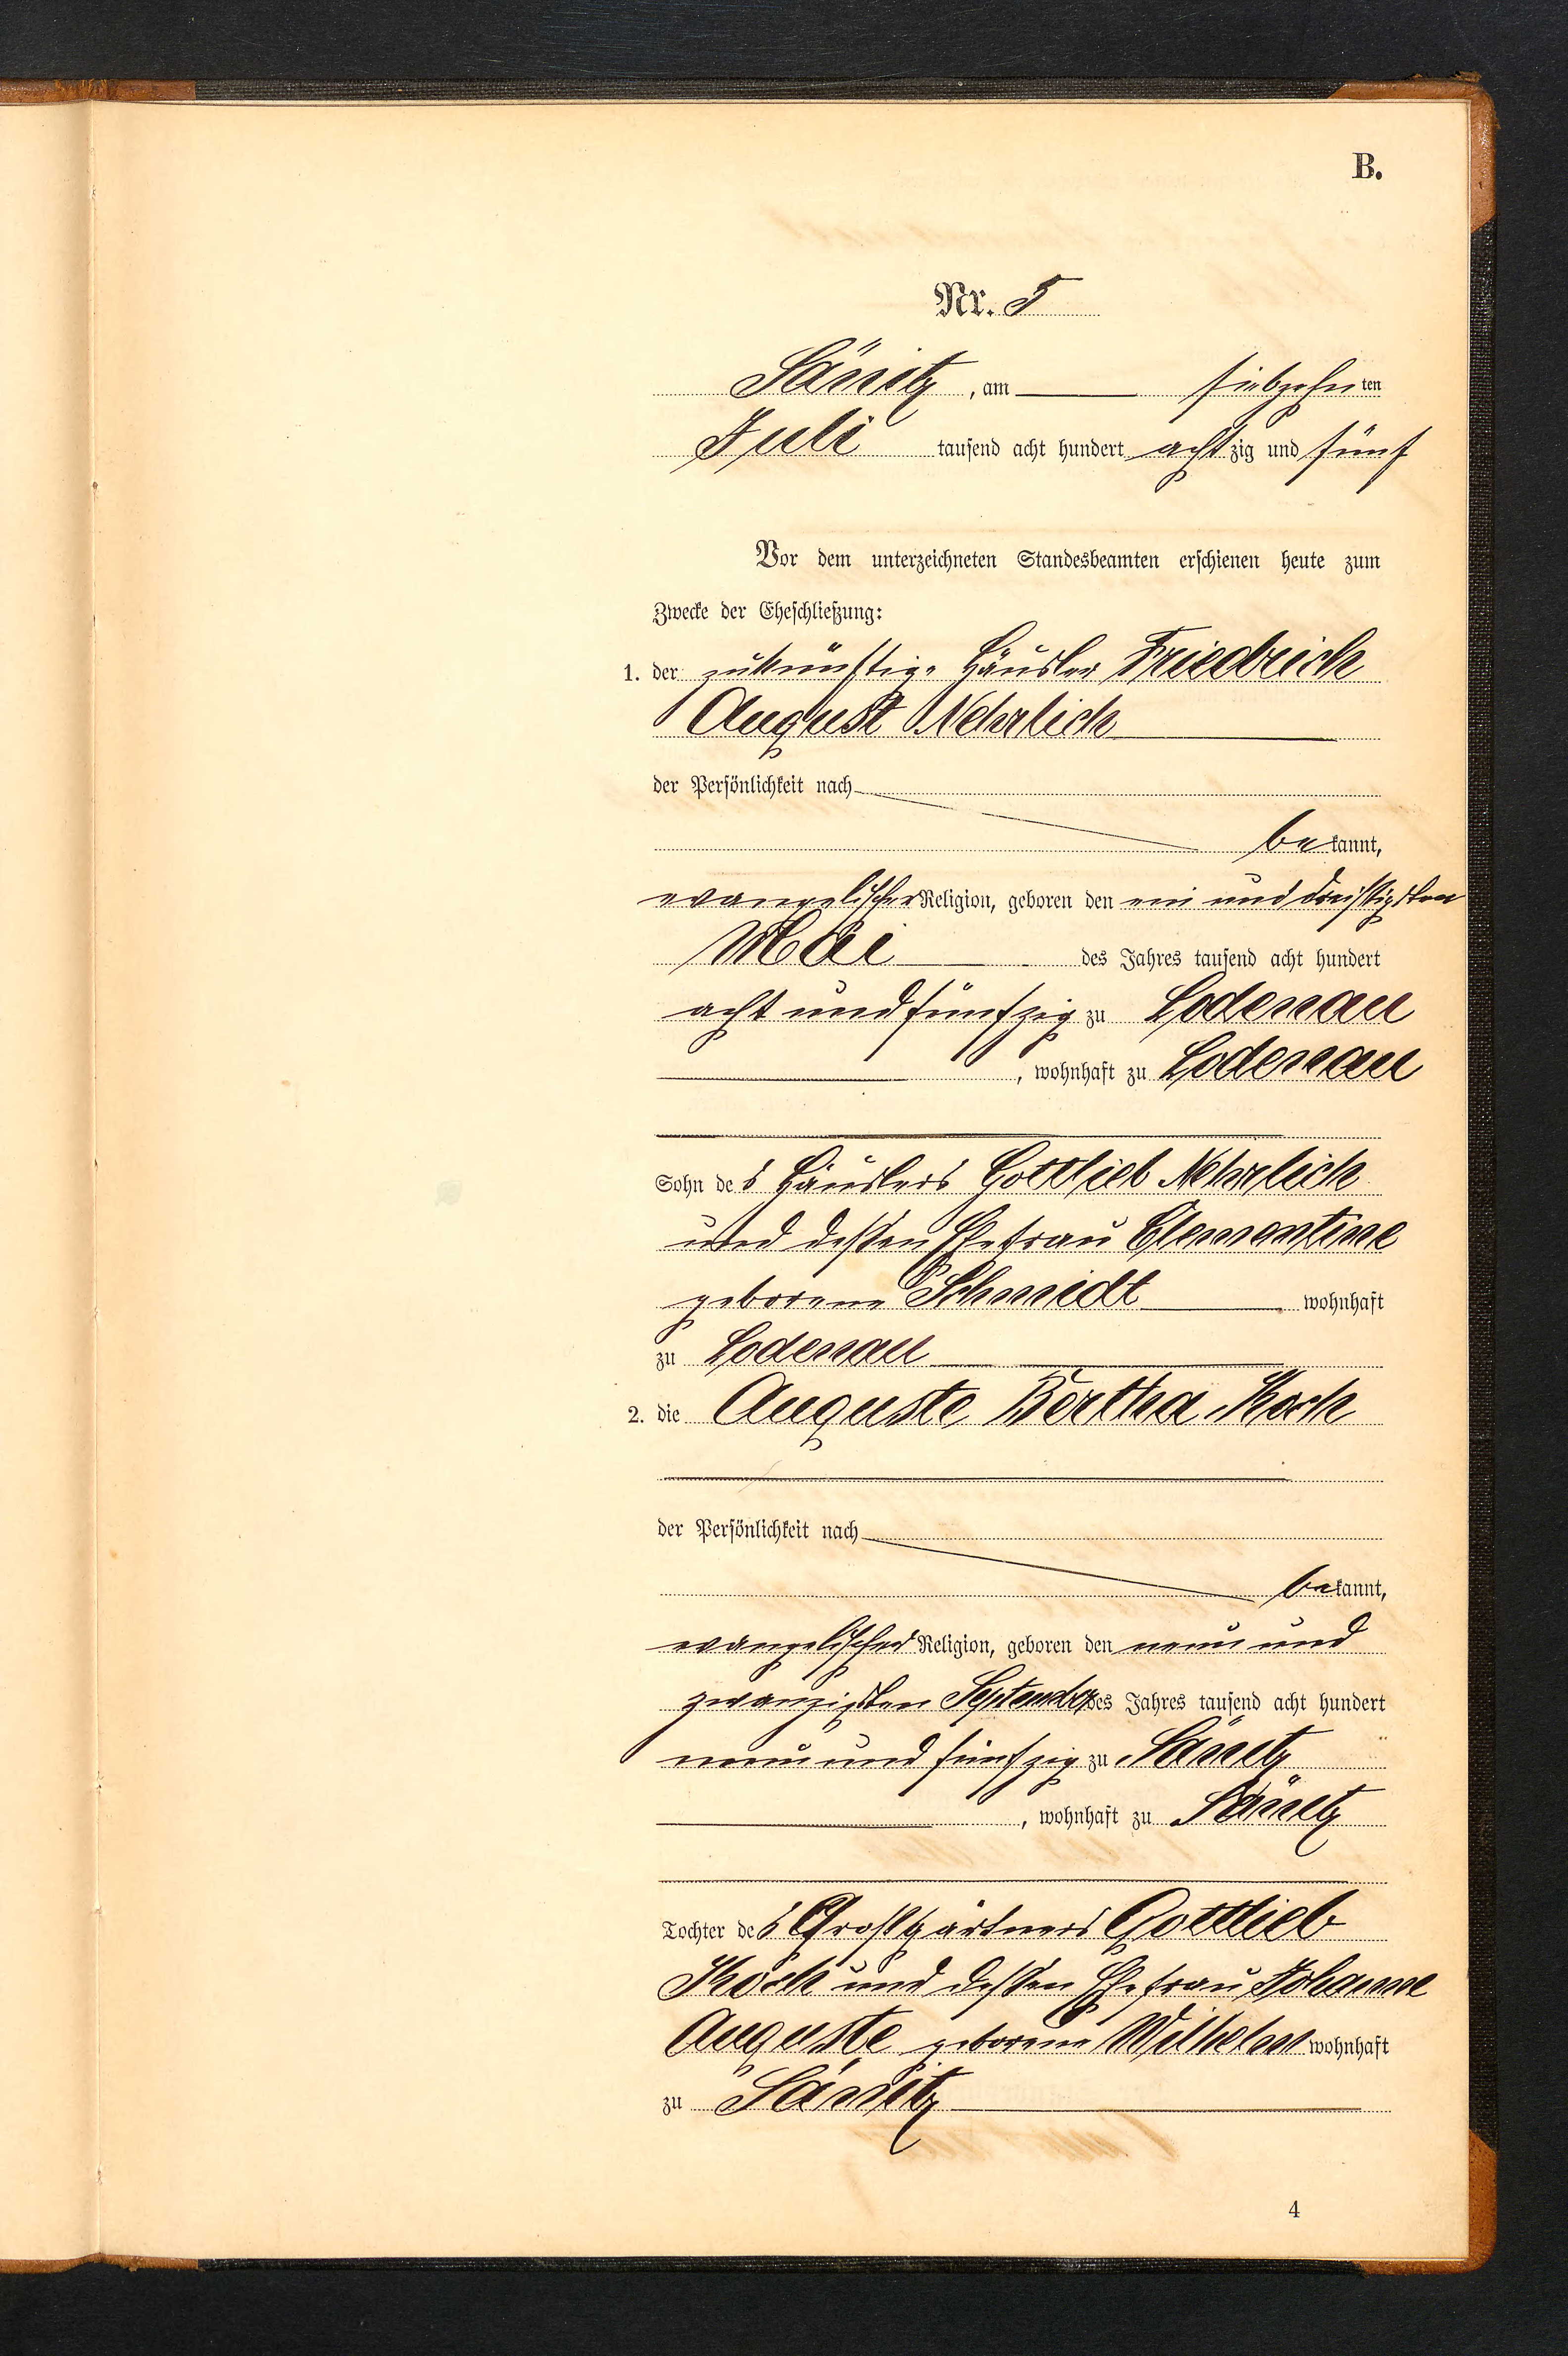 B.
Nr. 5
Sänitz, am siebzehn ten
Juli tausend acht hundert acht zig und fünf
Vor dem unterzeichneten Standesbeamten erschienen heute zum
Zwecke der Eheschließung:
1. der zukünftige Häusler Friedrich
August Nehrlich
der Persönlichkeit nach
be kannt,
evangelischer Religion, geboren den ein und dreißigsten
Mai des Jahres tausend acht hundert
acht und fünfzig zu Lodenau
, wohnhaft zu Lodenau
Sohn des Häuslers Gottlieb Nehrlich
und dessen Ehefrau Clementine
geborene Schmidt wohnhaft
zu Lodenau
2. die Auguste Bertha Koch
der Persönlichkeit nach
bekannt,
evangelischer Religion, geboren den neun und
zwanzigsten September des Jahres tausend acht hundert
neun und fünfzig zu Sänitz
, wohnhaft zu Sänitz
Tochter des Großgärtners Gottlieb
Koch und dessen Ehefrau Johanne
Auguste geborene Wilhelm wohnhaft
zu Sänitz
4